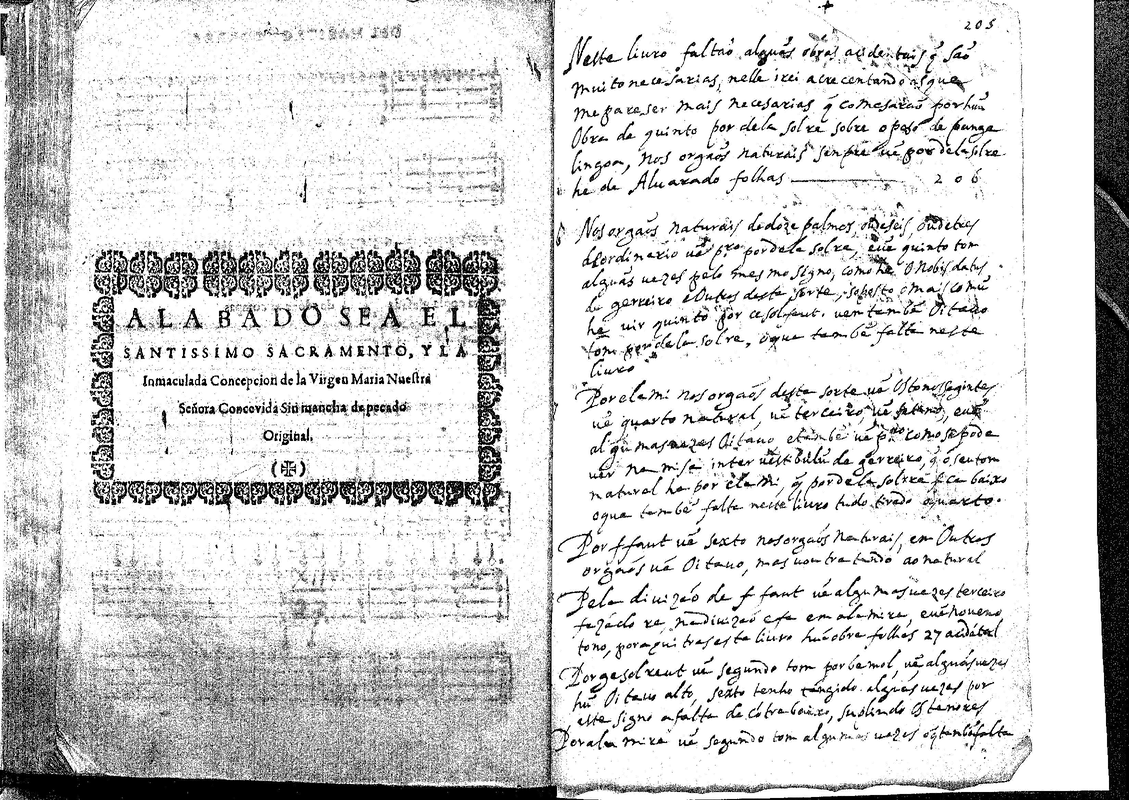 ALABADO SEA EL
SANTISSIMO SACRAMENTO, Y LA
Inmaculada Concepcion de la Virgen Maria Nuestra
Señora Concevida sin mancha de pecado
Original.
205
Neste livro faltaõ alguãs obras acidentais q̃ saõ
muito necesarias, nelle irei acrecentando as que
me pareser mais necesarias q̃ comesaraõ por huã
Obra de quinto por dela solre sobre o passo de pange
lingoa, Nos orgaõs naturais senpre vẽ por delasolre
he de Alvarado folhas 206
Nos orgaõs naturais de doze palmos, ou de seis, ou de tres
de ordinario vẽ pº por dela solre, e vẽ quinto tom
alguãs vezes pelo mesmo signo, como he O Nobis datus,
de gerreiro e Outros desta sorte, soposto o mais comũ
he vir quinto por cesolfaut. vem tambẽ Oitavo
tom por dela solre, o que tambẽ falta neste
livro
Por elami nos orgaõs desta sorte vẽ Os tons segintes
vẽ quarto natural, vẽ terceiro, vẽ setimo, e vẽ
algumas vezes Oitavo e tambẽ vẽ pº como se pode
ver na misa inter vestibulũ de gerreiro, q̃ o seu tom
natural he por elami, q̃ por dela solrre fica baixo
o que tambẽ falta neste livro tudo tirado o quarto.
Por ffaut vẽ sexto nos orgaõs naturais, em Outros
orgaõs vẽ Oitavo, mas vou tratando ao natural
Pela divizaõ de ffaut vẽ algumas vezes terceiro
na divizaõ e fa em alamire, e vẽ noveno
tono, por aqui tras este livro huã obra folhas 27 acidẽtal
Por gesolreut vẽ segundo tom por bemol, vẽ alguãs vezes
hũ Oitavo alto, sexto tenho tangido alguãs vezes por
este signo a falta de cõtrabaixo, suplindo Os tenores
Por alamire vẽ segundo tom algumas vezes o q̃ tambẽ falta